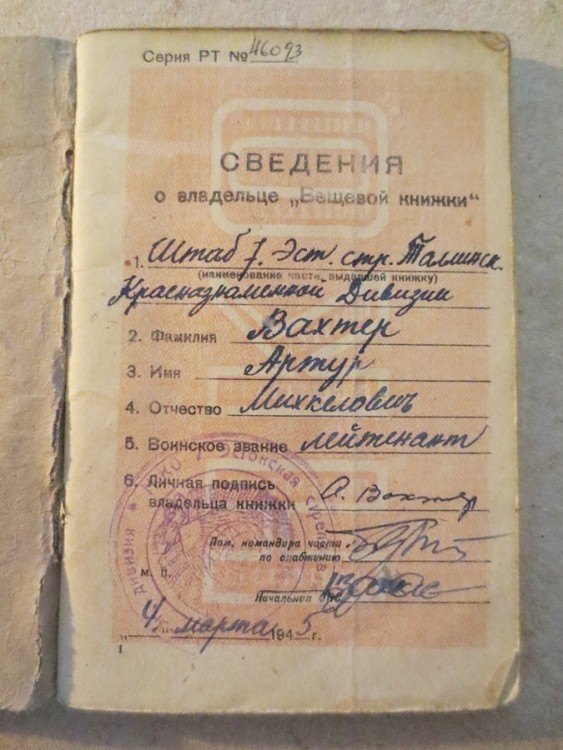 Серия РТ № 46093
СВЕДЕНИЯ
о владельце „Вещевой книжки“
1. Штаб 7. Эст. стр. Талинск.
(наименование части, выдавшей книжку)
Краснознаменной Дивизии
2. Фамилия Вахтер
3. Имя Артур
4. Отчество Михкеловичъ
5. Воинское звание лейтенант
6. Личная подпись
владельца книжки А. Вахтер
Пом. командира части
по снабжению
м. п.
Начальник
„4“ марта 1945 г.
1
Эстонская
дивизия
НКО